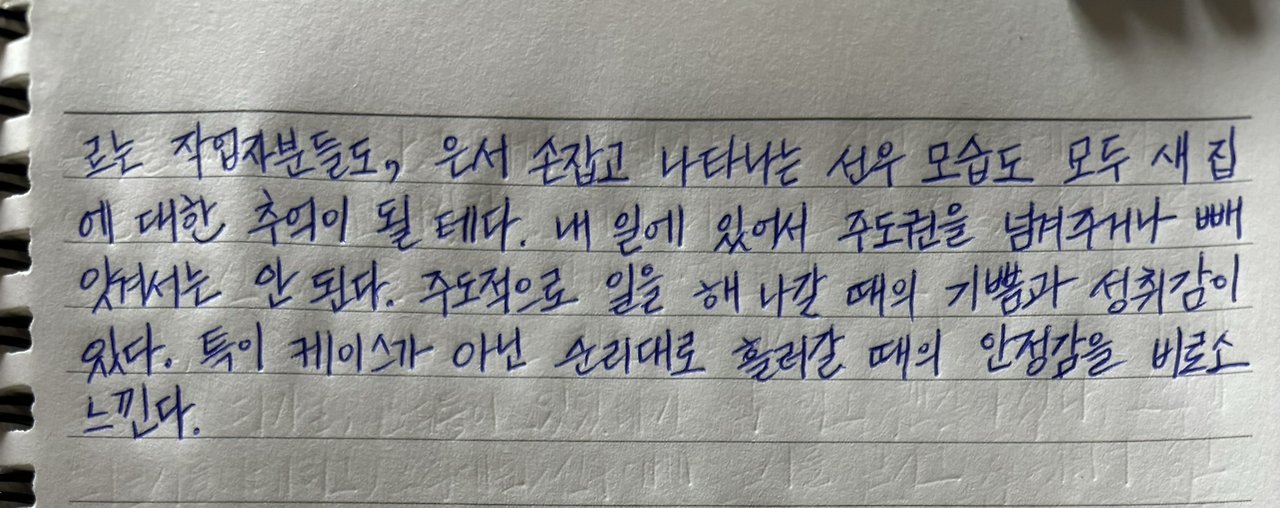 르는 작업자분들도, 은서 손잡고 나타나는 선우 모습도 모두 새 집
에 대한 추억이 될 테다. 내 일에 있어서 주도권을 넘겨주거나 빼
앗겨서는 안 된다. 주도적으로 일을 해 나갈 때의 기쁨과 성취감이
있다. 특이 케이스가 아닌 순리대로 흘러갈 때의 안정감을 비로소
느낀다.